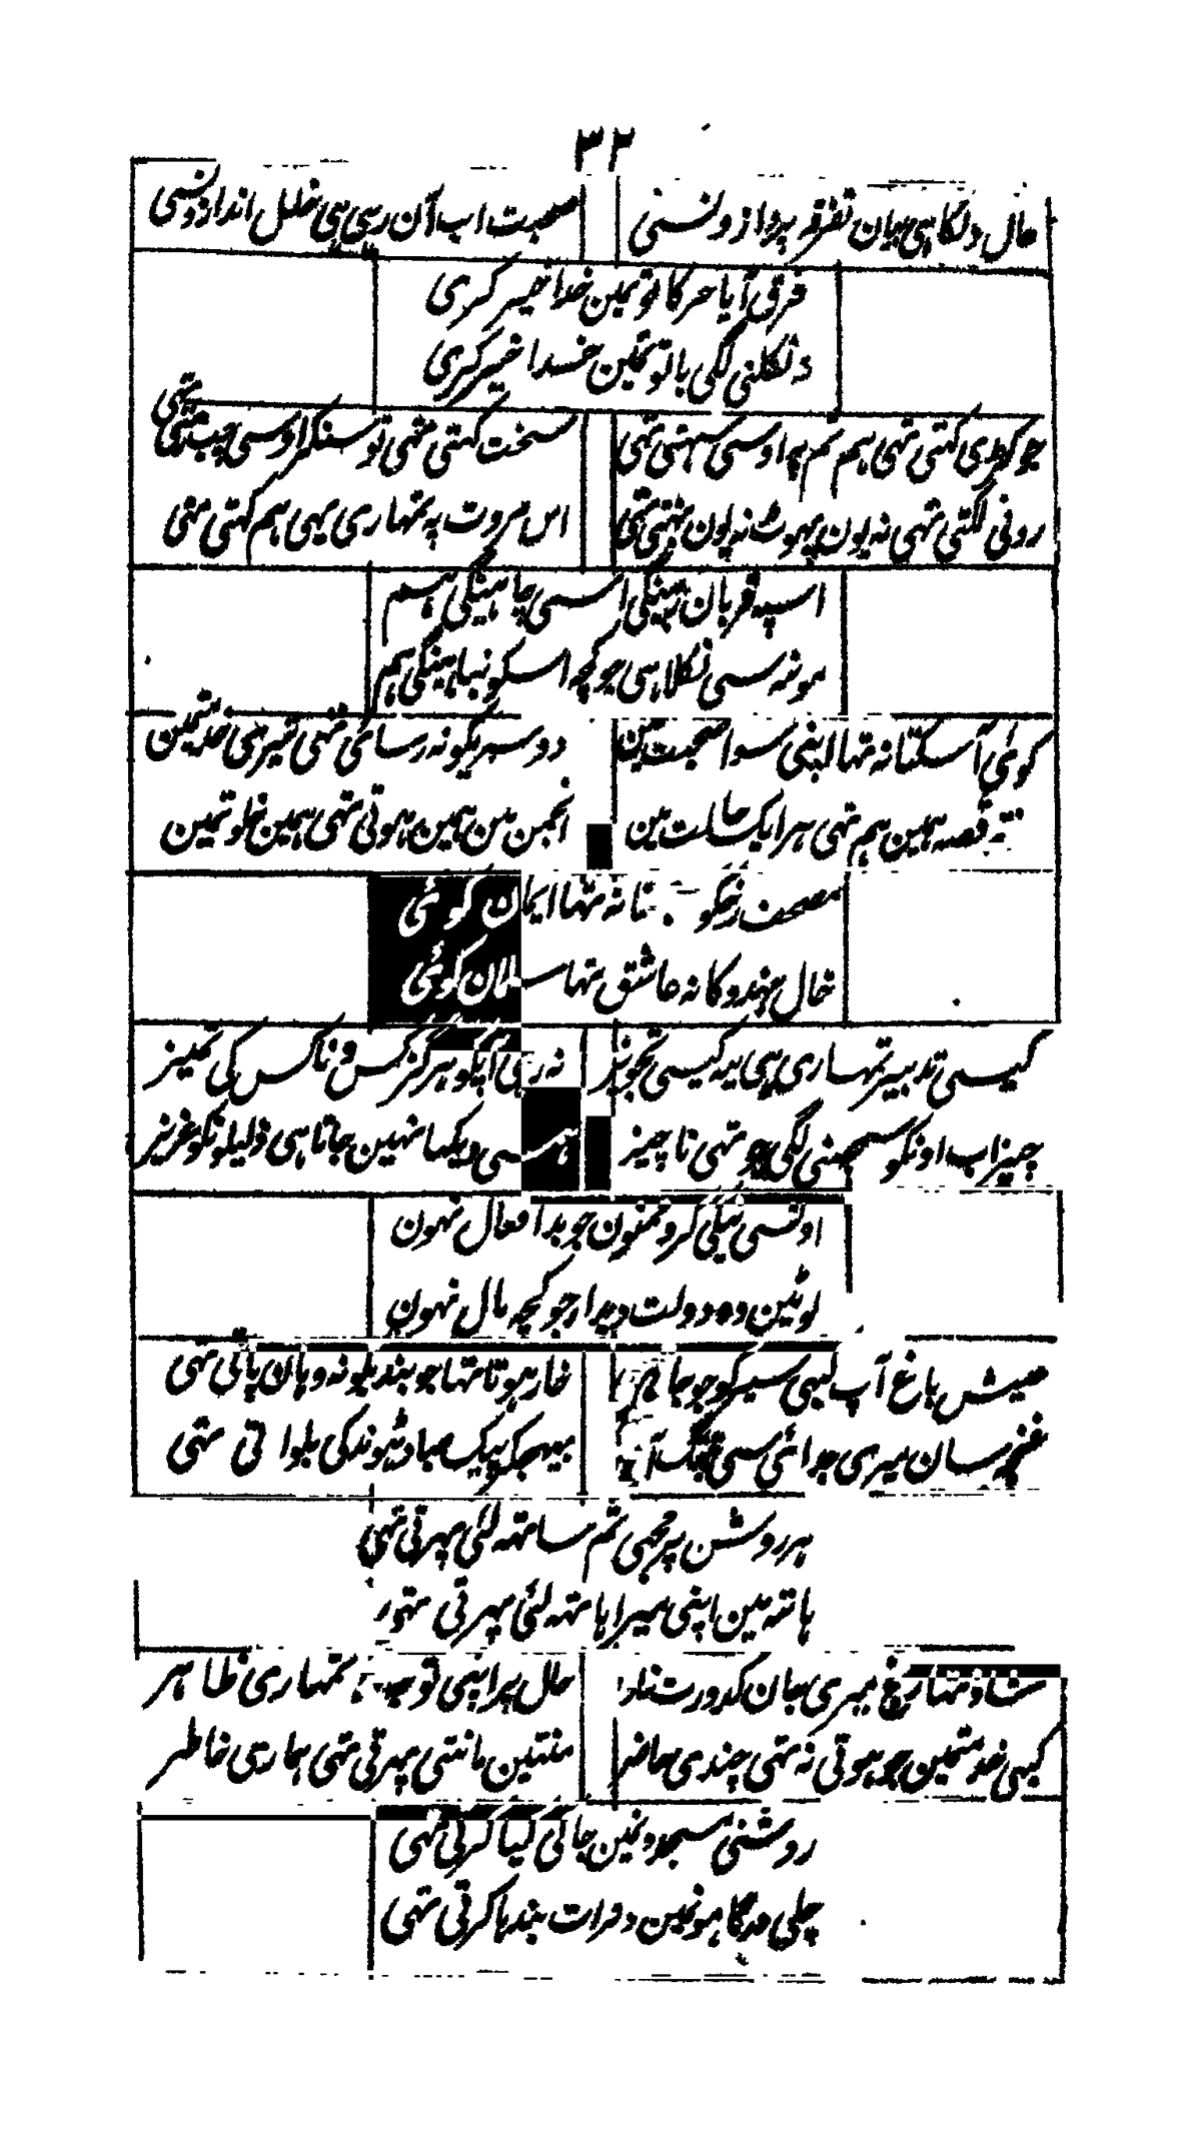 ۳۲
حال دلکا ہی بیان تفرقہ پرداز ونسی
صحبت اب آن رہی ہی خلل انداز ونسی
فرق آیا حرکا تو نمین خدا خیر کری
دن نکلنی لگی باتو نمین خدا خیر کری
جو کڑی کہتی تہی ہم تم پہ اوسی سہتی تہی
سخت کہتی تہی تو سنکر اوسی چپ رہتی تہی
رونی لگتی تہی نہ یون پہوٹ نہ یون بہتی تہی
اس مروت پہ تمہاری یہی ہم کہتی تہی
اسپہ قربان رہینگی اسی چاہینگی ہم
مونہہ سی نکلا ہی جو کچہ اسکو نباہینگی ہم
کوئی آسکتا نہ تہا اپنی سوا صحبت مین
دوسریکو نہ رسائی تہی تیری خدمتمین
قصہ ہمین ہم تہی ہر ایک حالت مین
انجمن مین ہمین ہوتی تہی ہمین خلوتمین
مصحف رخکو نہ تہا ایمان کوئی
خال ہندو کا نہ عاشق تہا مسلمان کوئی
کیسی تدبیر تمہاری ہی یہ کیسی تجویز
نہ رہی آپکو ہرگز کس و ناکس کی تمیز
چیز اب اونکو سمجہنی لگی جو تہی نا چیز
دیکہا نہین جاتا ہی ذلیلونکو عزیز
اونسی نیکی کرو ممنون جو بد افعال نہون
لوٹین وہ دولت دیدار جو کچہ مال نہون
عیش باغ آپ کبہی سیر کو جو جا
خار ہوتا تہا جو بندیکو نہ وہان پاتی تہی
غنچہ سان میری جدائی سی تنگ آ
بہیجکر پیک صبا ڈہونڈکی بلوا تی تہی
ہر روشن پر مجہی تم ساتہہ لئی پہرتی تہی
ہاتہ مین اپنی میرا ہاتہہ لئی پہرتی
شاد تہا رخ میری جان کدورت
حال پر اپنی توجہ تمہاری ظاہر
کبہی خدمتمین جو ہوتی نہ تہی چندی حاضر
منتین مانتی پہرتی تہی ہماری خاطر
روشنی مسجدونمین جاکی کیا کرتی تہی
چلی درگاہونمین دنرات بندہا کرتی تہی